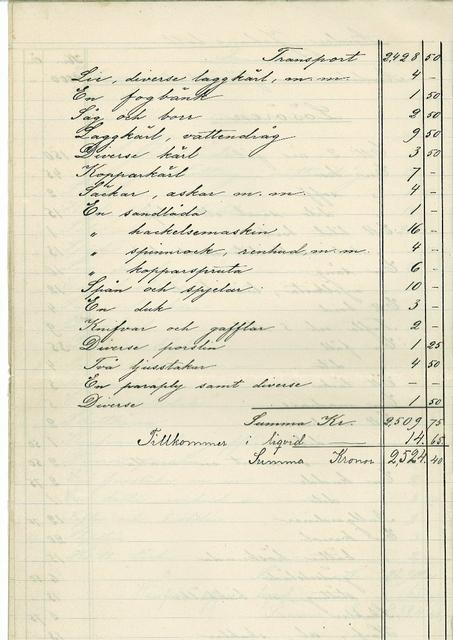 Transport 2428 50
Lie, diverse laggkärl, m. m. 4 -
En fogbänk 1 50
Såg och borr 2 50
Laggkärl, vattendräg 9 50
Diverse kärl 3 50
Kopparkärl 7 -
Säckar, askar m. m. 4 -
En sandlåda 1 -
" hackelsemaskin 16 -
" spinnrock, renhud, m. m. 4 -
" kopparspruta 6 -
Spån och spjelar 10 -
En duk 3 -
Knifvar och gafflar 2 -
Diverse porslin 1 25
Två ljusstakar 4 50
En paraply samt diverse - -
Diverse 1 50
Summa Kr. 2,509 75
Tillkommer i liqvid 14. 65
Summa Kronor 2,524. 40